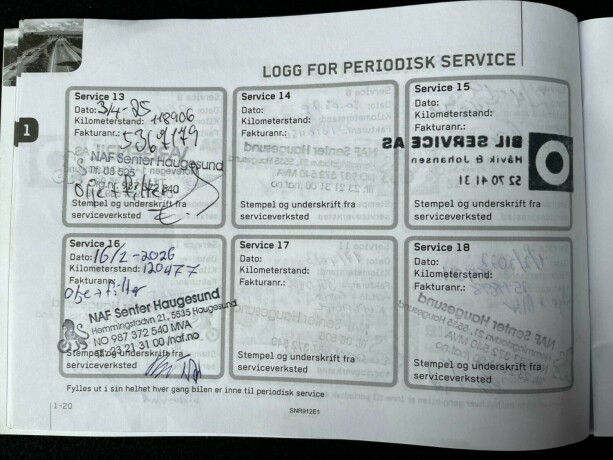 LOGG FOR PERIODISK SERVICE
1
Service 13
Dato: 3/4-25
Kilometerstand: 118906
Fakturanr.: 5369179
NAF Senter Haugesund
Tlf. 08 505
Org.nr. 987 372 540
Stempel og underskrift fra
serviceverksted
Service 14
Dato:
Kilometerstand:
Fakturanr.:
Stempel og underskrift fra
serviceverksted
Service 15
Dato:
Kilometerstand:
Fakturanr.:
BIL SERVICE AS
Håvik & Johansen
52 70 41 31
Stempel og underskrift fra
serviceverksted
Service 16
Dato: 16/2-2026
Kilometerstand: 120477
Fakturanr.:
Olje+filter
NAF Senter Haugesund
Hemmingstadvn 21, 5535 Haugesund
NO 987 372 540 MVA
Tlf. 23 21 31 00 /naf.no
Stempel og underskrift fra
serviceverksted
Service 17
Dato:
Kilometerstand:
Fakturanr.:
Stempel og underskrift fra
serviceverksted
Service 18
Dato:
Kilometerstand:
Fakturanr.:
Stempel og underskrift fra
serviceverksted
Fylles ut i sin helhet hver gang bilen er inne til periodisk service
1-20
SNR912E1